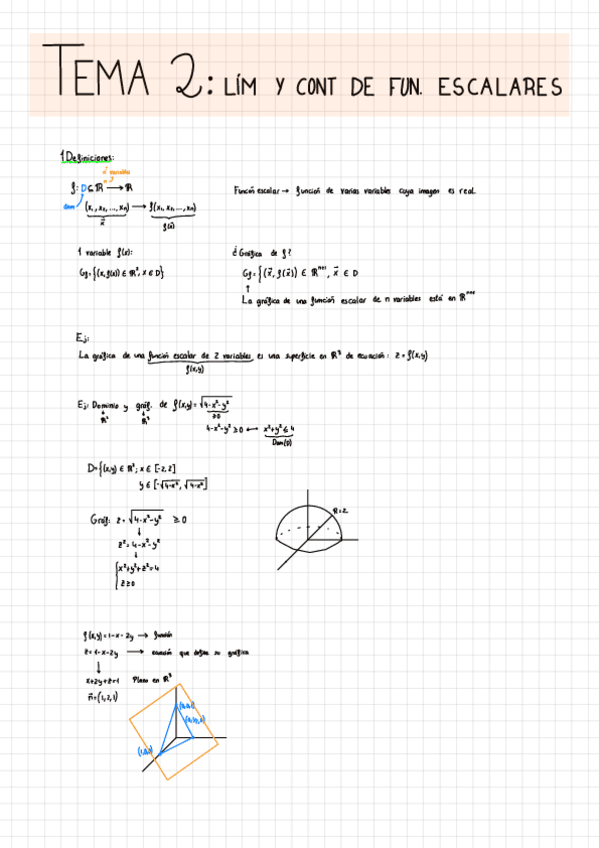 TEMA 2: LÍM Y CONT DE FUN. ESCALARES
1. Definiciones:
nº variables
f: D ⊆ ℝ → ℝ
Dom
(x₁, x₂, ..., xₙ) → f(x₁, x₂, ..., xₙ)
x⃗ f(x⃗)
Función escalar → función de varias variables cuya imagen es real.
1 variable f(x):
Gf = {(x, f(x)) ∈ ℝ², x ∈ D}
¿Gráfica de f?
Gf = {(x⃗, f(x⃗)) ∈ ℝⁿ⁺¹, x⃗ ∈ D
↑
La gráfica de una función escalar de n variables está en ℝⁿ⁺¹
Ej:
La gráfica de una función escalar de 2 variables es una superficie en ℝ³ de ecuación: z = f(x,y)
f(x,y)
Ej: Dominio y gráf. de f(x,y) = √(4-x²-y²)
ℝ² ℝ³ ≥0
4-x²-y² ≥ 0 ⟷ x²+y² ≤ 4
Dom(f)
D = {(x,y) ∈ ℝ²; x ∈ [-2,2]
y ∈ [-√(4-x²), √(4-x²)]
Gráf: z = √(4-x²-y²) ≥ 0
↓
z² = 4-x²-y²
↓
{x²+y²+z² = 4
z ≥ 0
R=2
f(x,y) = 1-x-2y → función
z = 1-x-2y → ecuación que define su gráfica
↓
x+2y+z=1 Plano en ℝ³
n⃗ = (1,2,1)
(0,0,1)
(0,1/2,0)
(1,0,0)